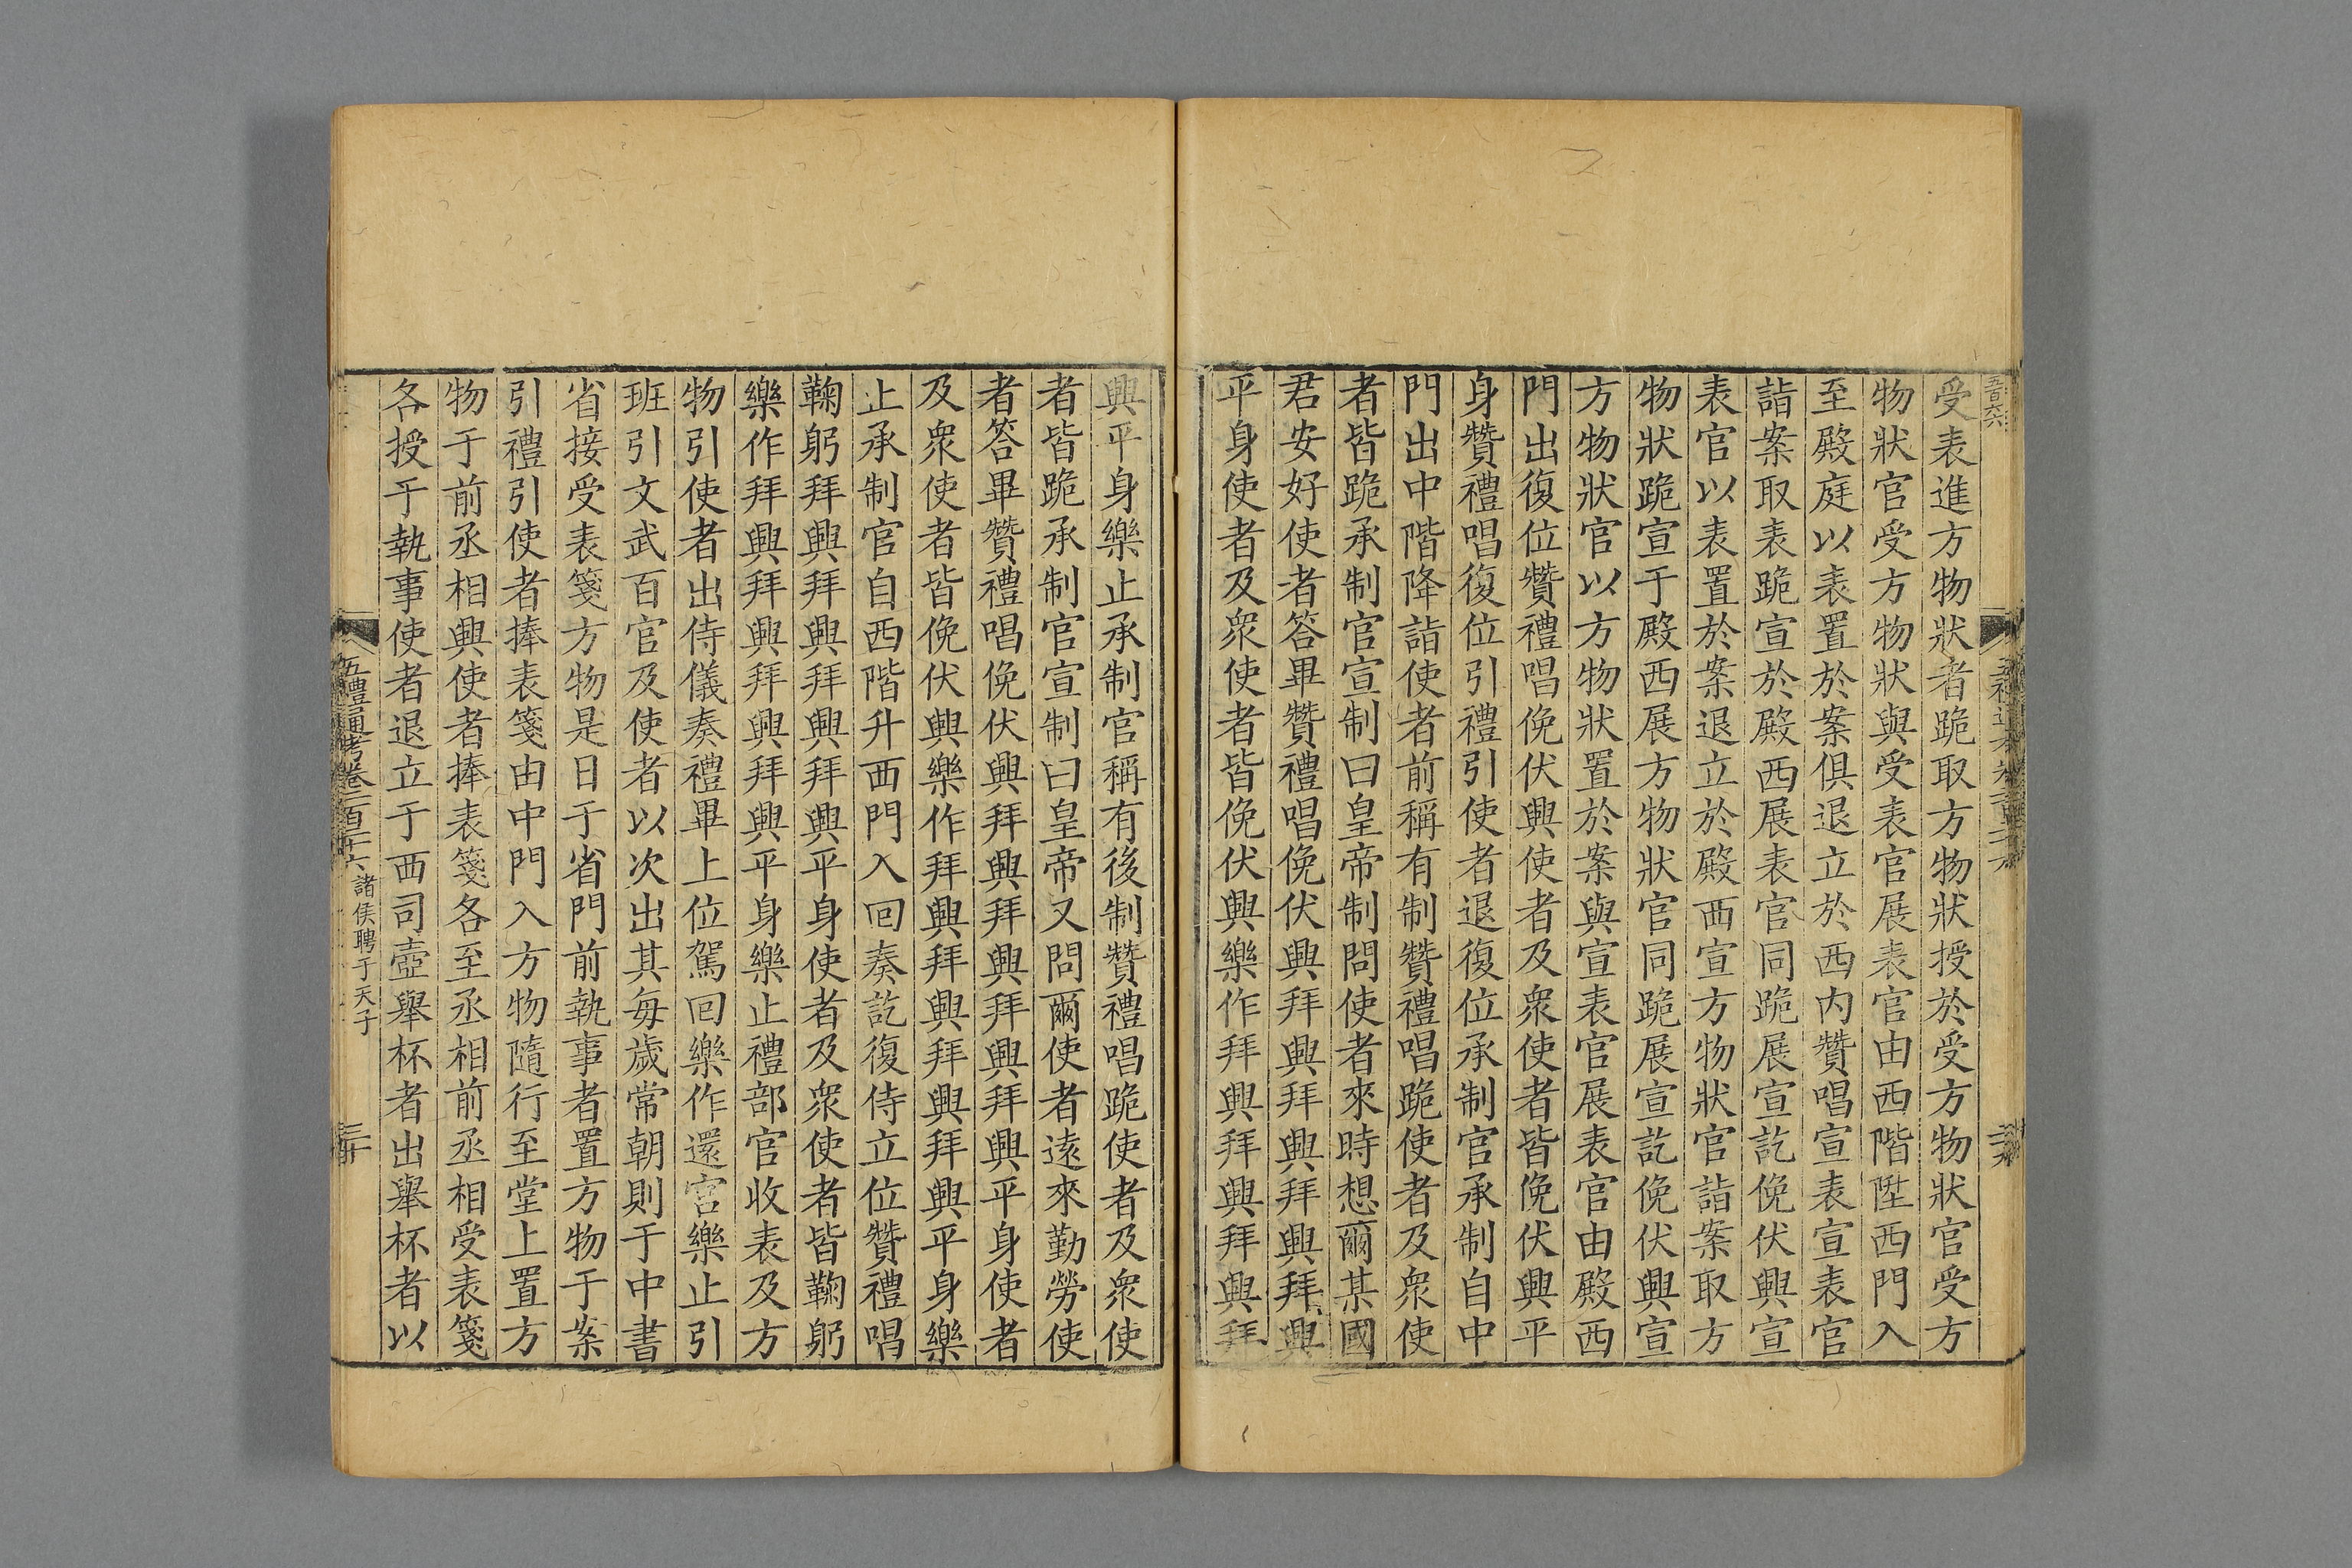 受表進方物狀者跪取方物狀授於受方物狀官受方
物狀官受方物狀與受表官展表官由西階陞西門入
至殿庭以表置於案俱退立於西内贊唱宣表宣表官
詣案取表跪宣於殿西展表官同跪展宣訖俛伏興宣
表官以表置於案退立於殿西宣方物狀官詣案取方
物狀跪宣于殿西展方物狀官同跪展宣訖俛伏興宣
方物狀官以方物狀置於案與宣表官展表官由殿西
門出復位贊禮唱俛伏興使者及衆使者皆俛伏興平
身贊禮唱復位引禮引使者退復位承制官承制自中
門出中階降詣使者前稱有制贊禮唱跪使者及衆使
者皆跪承制官宣制曰皇帝制問使者來時想爾某國
君安好使者答畢贊禮唱俛伏興拜興拜興拜興拜興
平身使者及衆使者皆俛伏興樂作拜興拜興拜興拜
興平身樂止承制官稱有後制贊禮唱跪使者及衆使
者皆跪承制官宣制曰皇帝又問爾使者遠來勤勞使
者答畢贊禮唱俛伏興拜興拜興拜興拜興平身使者
及衆使者皆俛伏興樂作拜興拜興拜興拜興平身樂
止承制官自西階升西門入回奏訖復侍立位贊禮唱
鞠躬拜興拜興拜興拜興平身使者及衆使者皆鞠躬
樂作拜興拜興拜興拜興平身樂止禮部官收表及方
物引使者出侍儀奏禮畢上位駕回樂作還宫樂止引
班引文武百官及使者以次出其每歲常朝則于中書
省接受表箋方物是日于省門前執事者置方物于案
引禮引使者捧表箋由中門入方物隨行至堂上置方
物于前丞相興使者捧表箋各至丞相前丞相受表箋
各授于執事使者退立于西司壺舉杯者出舉杯者以
五禮通考卷二百二十六 諸侯聘于天子 三十